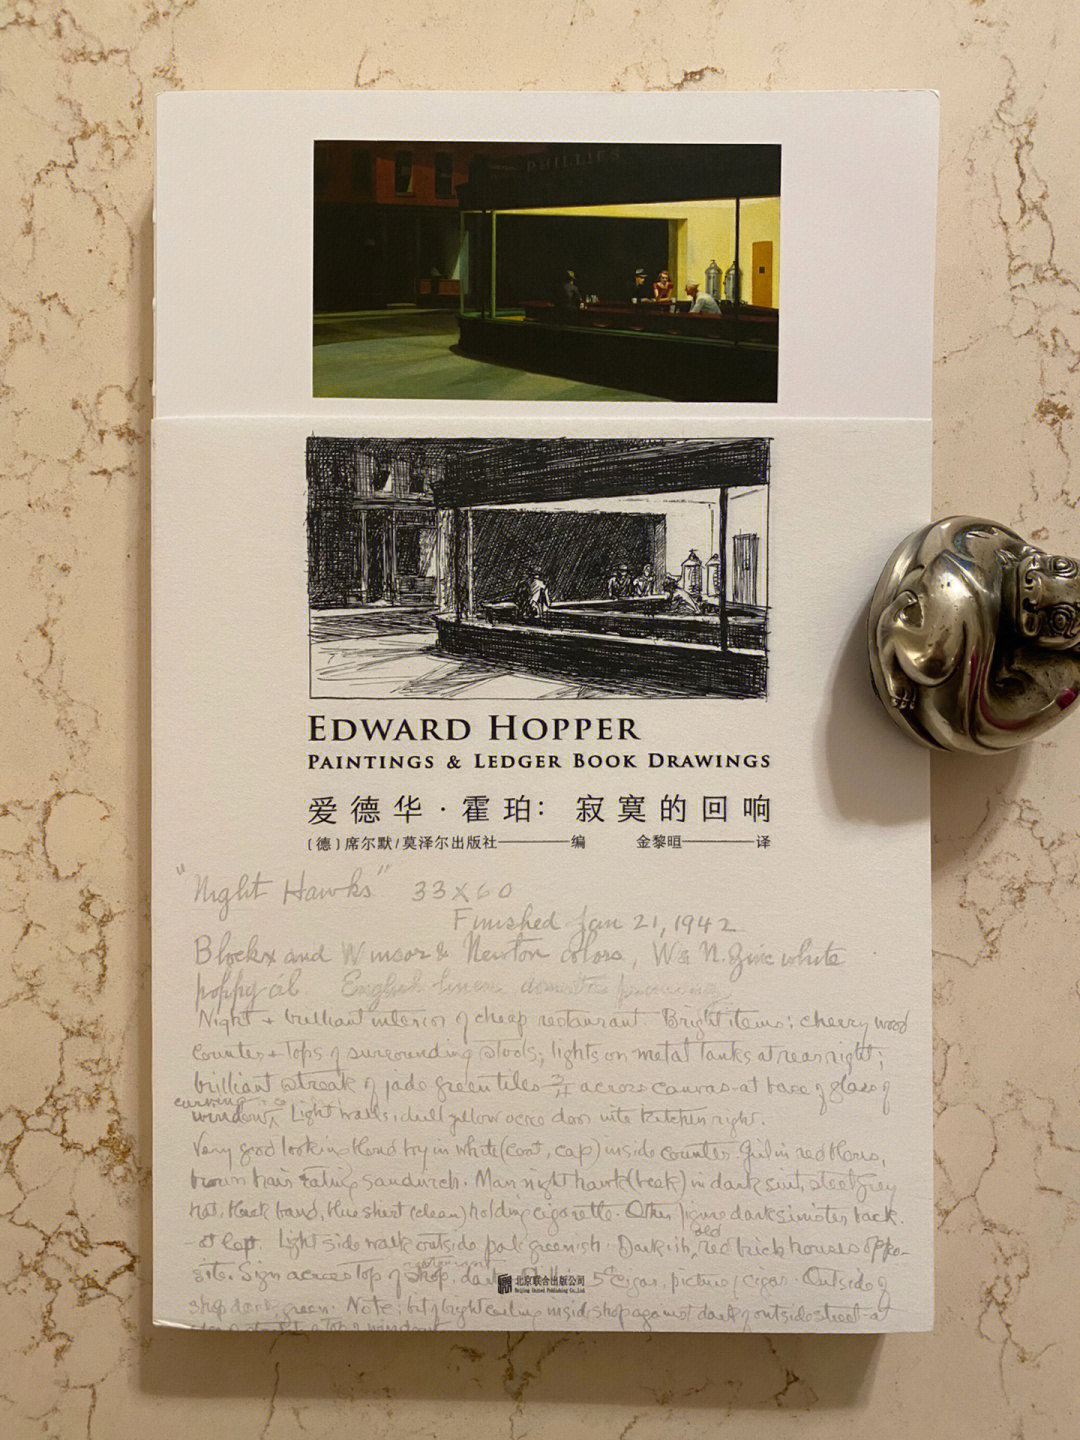 PHILLIES
EDWARD HOPPER
PAINTINGS & LEDGER BOOK DRAWINGS
爱德华·霍珀：寂寞的回响
〔德〕席尔默/莫泽尔出版社——编 金黎晅——译
"Night Hawks" 33 X 60
Finished Jan 21, 1942
Blockx and Winsor & Newton colors, W & N. Zinc white
poppy oil. English linen
Night + brilliant interior of cheap restaurant. Bright items: cherry wood
counter + tops of surrounding stools; lights on metal tanks at rear right;
brilliant streak of jade green tiles 3/4 across canvas - at base of glass of
window curving Light walls, dull yellow ocre door into kitchen right.
Very good looking blond boy in white (coat, cap) inside counter. Girl in red blouse,
brown hair eating sandwich. Man night hawk (beak) in dark suit, steel grey
hat, black band, blue shirt (clean) holding cigarette. Other figure dark sinister back.
at left. Light side walk outside pale greenish. Darkish old red brick houses oppo-
site. Sign across top of shop, dark 5¢ cigar, picture of cigar. Outside of
shop dark, green. Note: bit of bright ceiling inside shop against dark of outside street - at
北京联合出版公司
Beijing United Publishing Co.,Ltd.